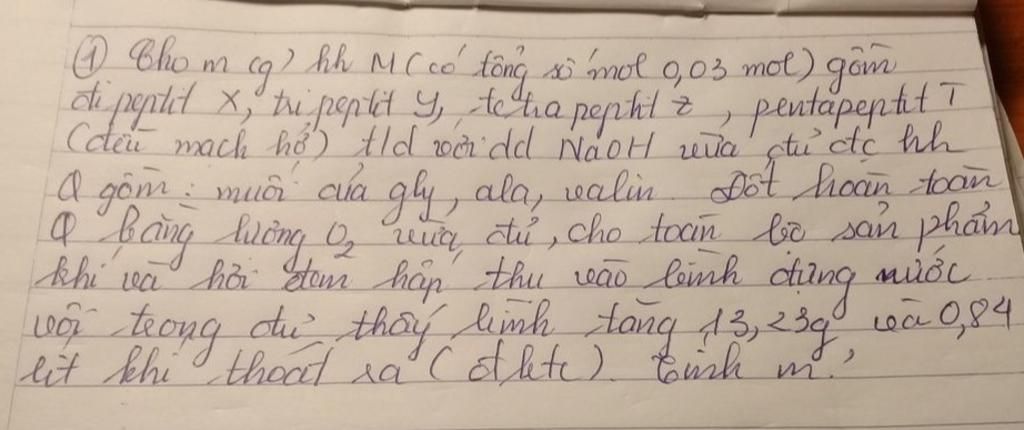 ① Cho m (g) hh M (có tổng số mol 0,03 mol) gồm
đipeptit X, tripeptit Y, tetrapeptit Z, pentapeptit T
(đều mạch hở) t/d với dd NaOH vừa đủ đc hh
Q gồm: muối của gly, ala, valin. Đốt hoàn toàn
Q bằng lượng O2 vừa đủ, cho toàn bộ sản phẩm
khí và hơi đem hấp thu vào bình đựng nước
vôi trong dư thấy bình tăng 13,23g và 0,84
lít khí thoát ra (đktc). Tính m?